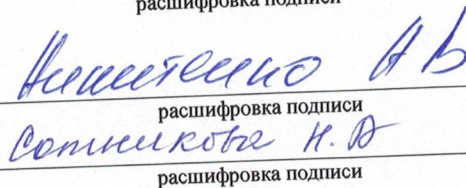 расшифровка подписи
Никитенко А В
расшифровка подписи
Сотникова Н. А
расшифровка подписи